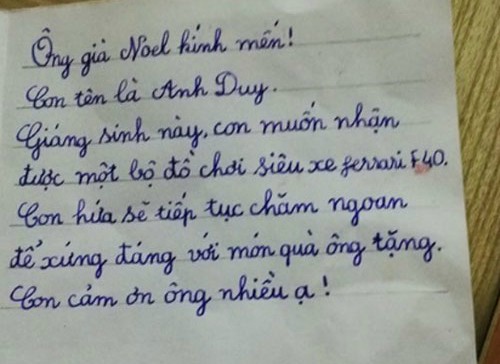 Ông già Noel kính mến!
Con tên là Anh Duy.
Giáng sinh này, con muốn nhận
được một bộ đồ chơi siêu xe ferrari F40.
Con hứa sẽ tiếp tục chăm ngoan
để xứng đáng với món quà ông tặng.
Con cảm ơn ông nhiều ạ!